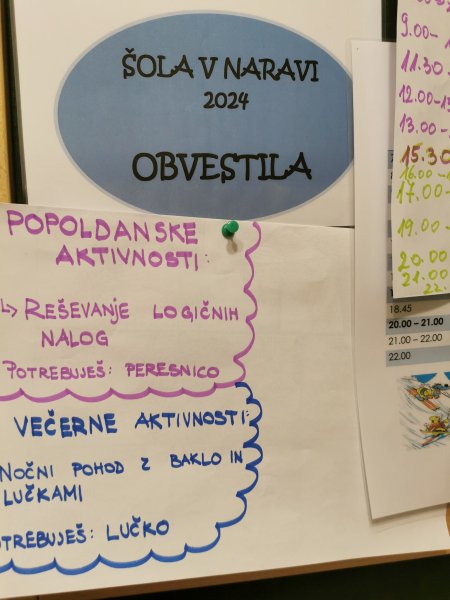 ŠOLA V NARAVI
2024
OBVESTILA
POPOLDANSKE
AKTIVNOSTI:
↳ REŠEVANJE LOGIČNIH
NALOG
POTREBUJEŠ: PERESNICO
VEČERNE AKTIVNOSTI:
NOČNI POHOD Z BAKLO IN
LUČKAMI
LUČKO
9.00-
11.30-
12.00-
13.00-
15.30
16.00-
17.00-
19.00-
20.00
21.00
22.
18.45
20.00 – 21.00
21.00 – 22.00
22.00